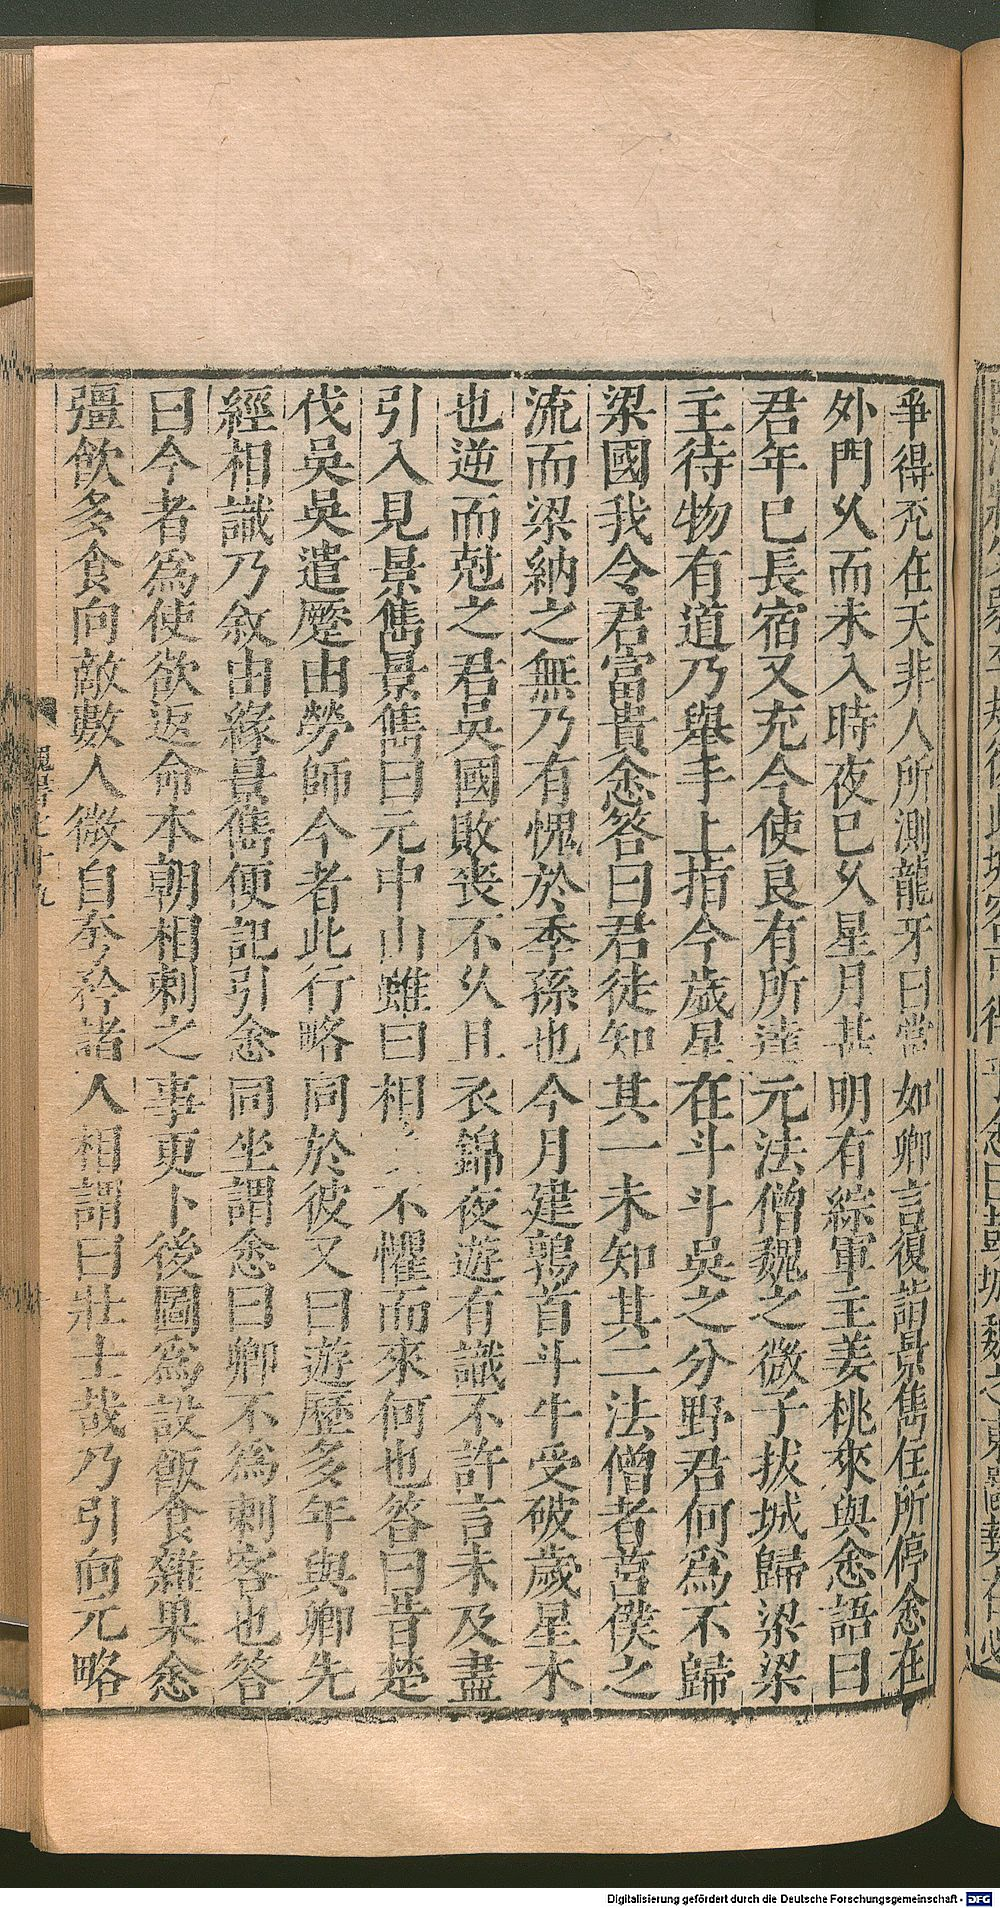 爭得充在天非人所測龍牙曰當如卿言復詣景雋住所停悆在
外門久而未入時夜已久星月甚明有綜軍主姜桃來與悆語曰
君年已長宿又充今使良有所達元法僧魏之微子拔城歸梁梁
主待物有道乃舉手上指今歲星在斗斗吳之分野君何爲不歸
梁國我令君富貴悆答曰君徒知其一未知其二法僧者莒僕之
流而梁納之無乃有愧於季孫也今月建鶉首斗牛受破歲星木
也逆而尅之君吳國敗喪不久且衣錦夜遊有識不許言未及盡
引入見景雋景雋曰元中山雖曰相不懼而來何也答曰昔楚
伐吳吳遣蹷由勞師今者此行略同於彼又曰遊歷多年與卿先
經相識乃敘由緣景雋便記引悆同坐謂悆曰卿不爲刺客也答
曰今者爲使欲返命本朝相刺之事更卜後圖爲設飯食雜果悆
彊飲多食向敵數人微自夸矜諸人相謂曰壯士哉乃引向元略
魏書七十九
Digitalisierung gefördert durch die Deutsche Forschungsgemeinschaft - DFG